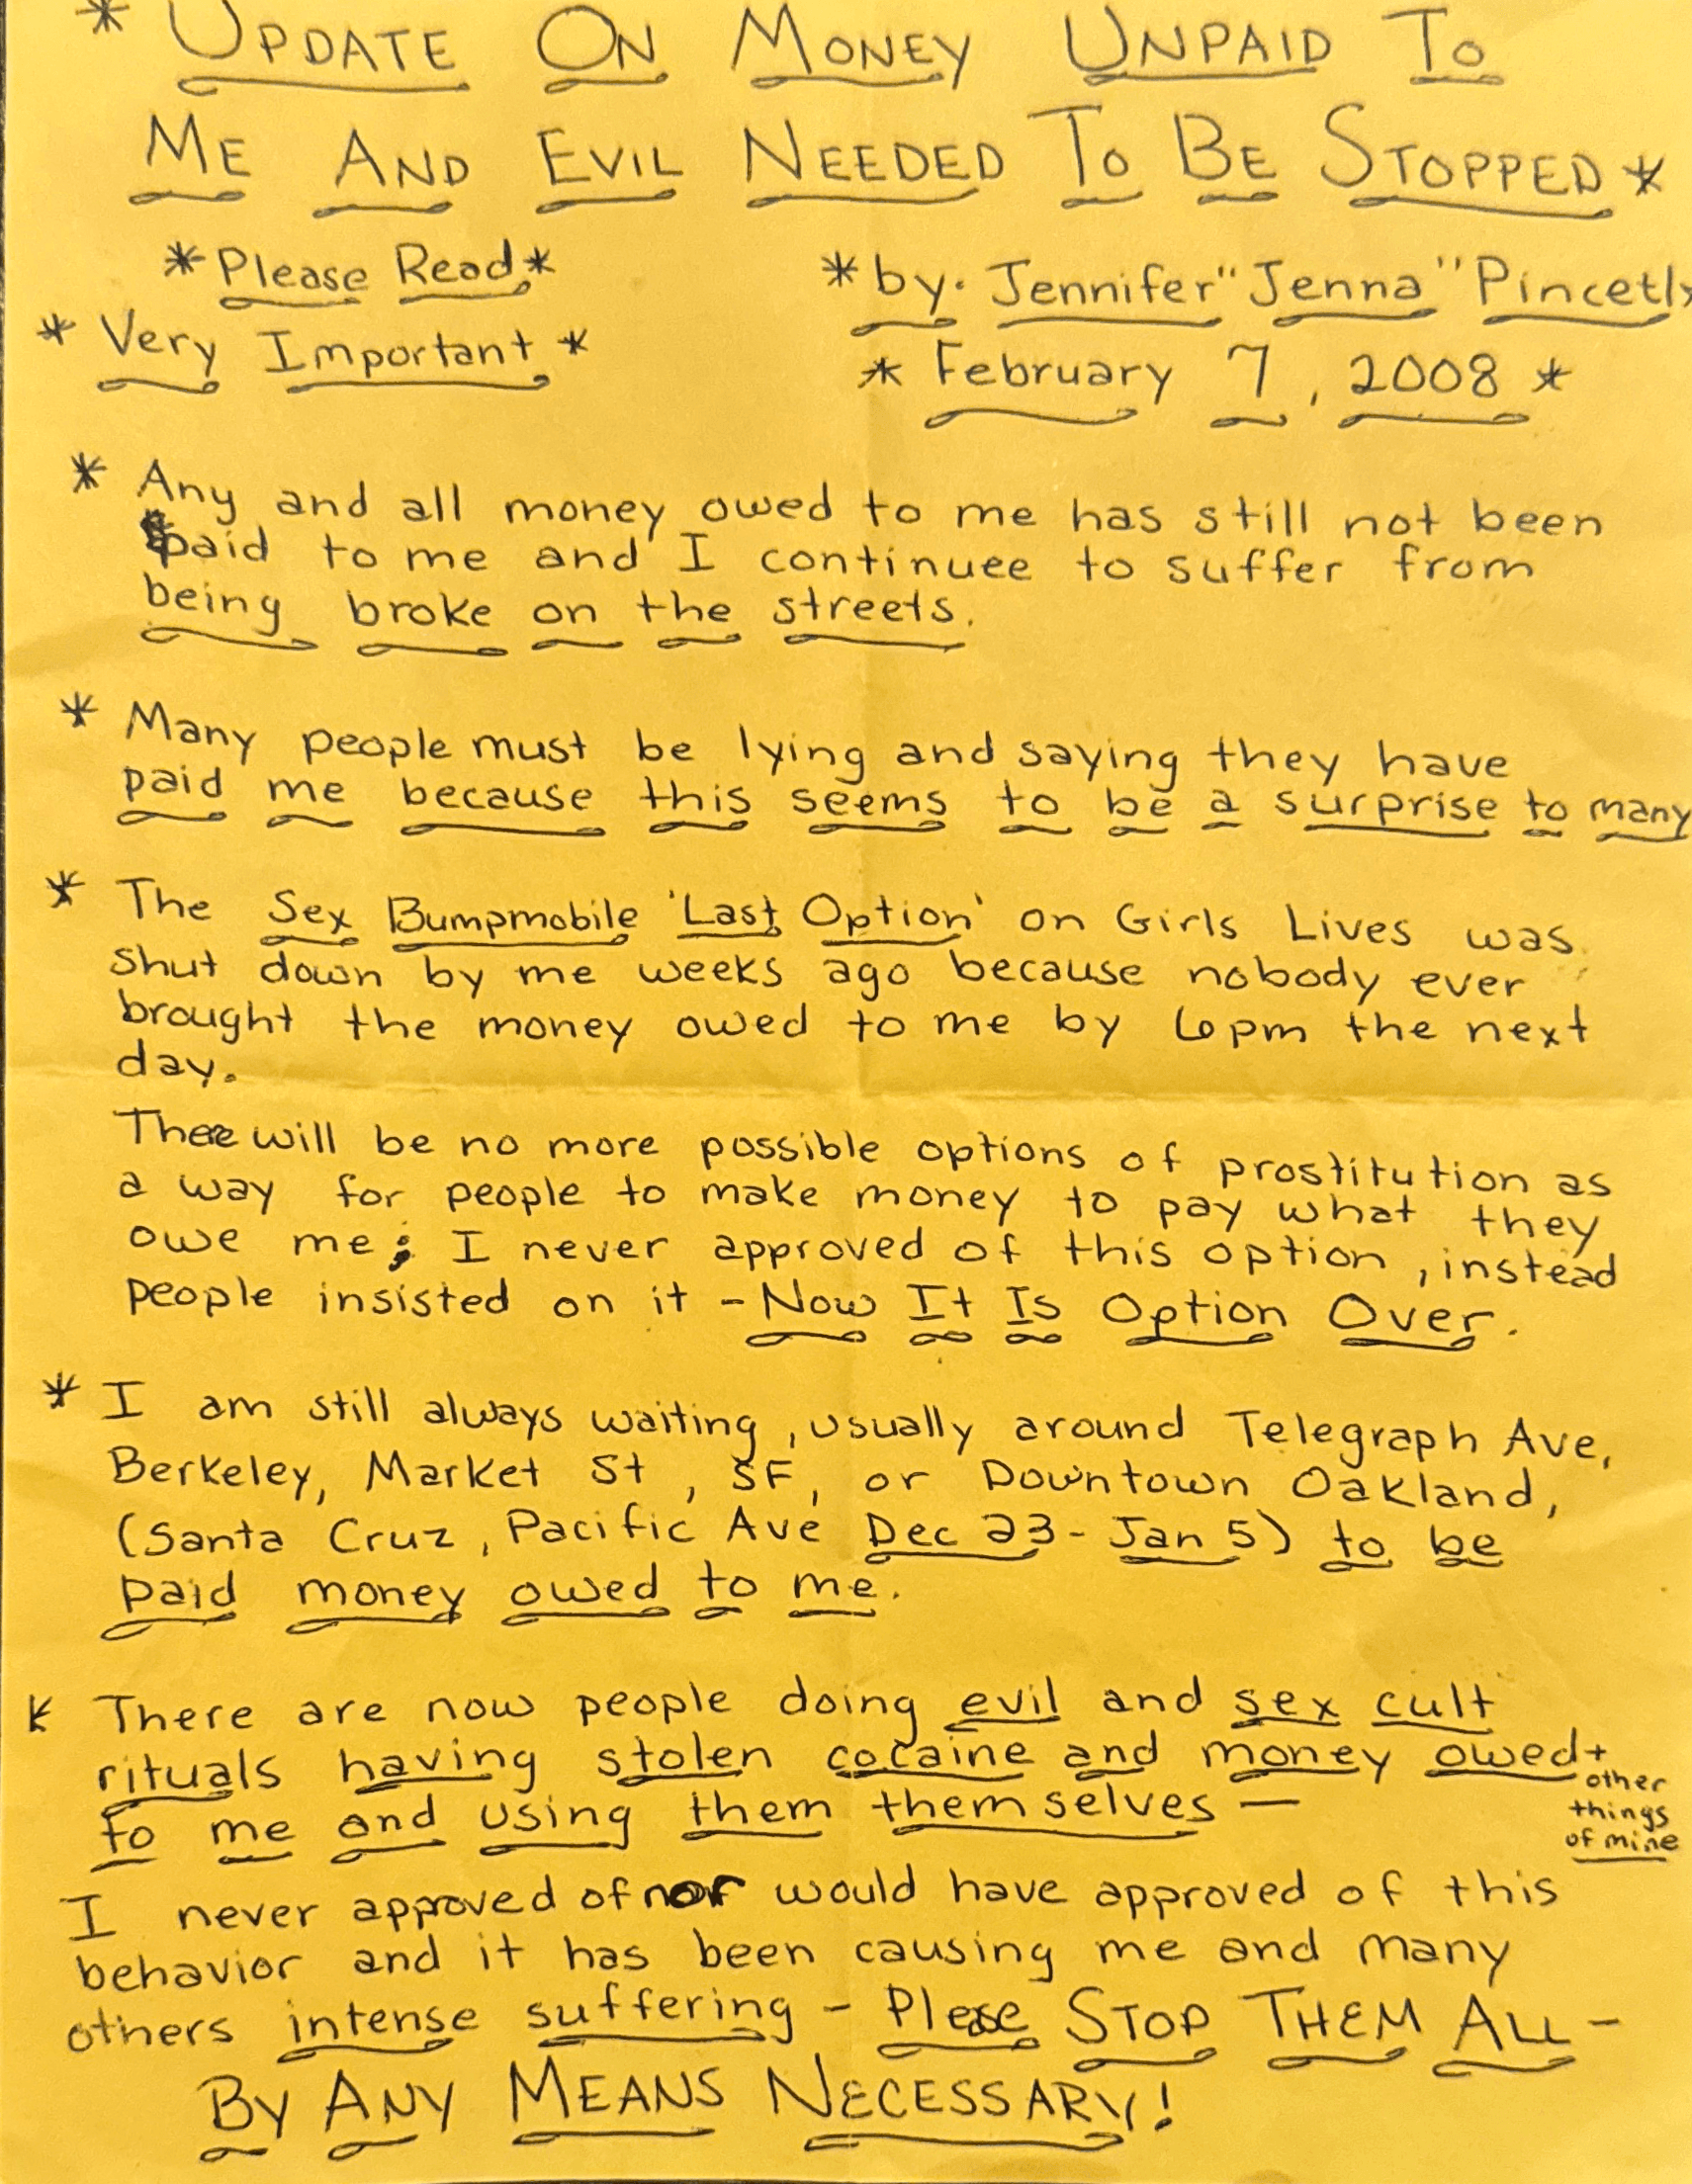 * UPDATE ON MONEY UNPAID TO
ME AND EVIL NEEDED TO BE STOPPED *
*Please Read*
*by: Jennifer "Jenna" Pincetly
* Very Important *
* February 7, 2008 *
* Any and all money owed to me has still not been
paid to me and I continuee to suffer from
being broke on the streets.
* Many people must be lying and saying they have
paid me because this seems to be a surprise to many
* The Sex Bumpmobile 'Last Option' on Girls Lives was
shut down by me weeks ago because nobody ever
brought the money owed to me by 6pm the next
day.
There will be no more possible options of prostitution as
a way for people to make money to pay what they
owe me; I never approved of this option, instead
people insisted on it - Now It Is Option Over.
* I am still always waiting, usually around Telegraph Ave,
Berkeley, Market St, SF, or Downtown Oakland,
(Santa Cruz, Pacific Ave Dec 23 - Jan 5) to be
paid money owed to me.
* There are now people doing evil and sex cult
rituals having stolen cocaine and money owed +
other
things
of mine
to me and using them themselves —
I never approved of nor would have approved of this
behavior and it has been causing me and many
others intense suffering - Please STOP THEM ALL -
BY ANY MEANS NECESSARY!